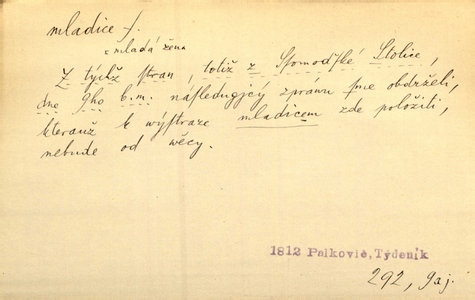 mladice f.
= mladá žena
Z týchž stran, totiž z Šomoďſké Stolice,
dne 9ho b.m. náſledugjcý zpráwu ſme obdrželi,
kteraužto k weyſtraze mladicem zde položiti,
nebude od wěcy.
1812 Palkovič, Týdeník
292, 9aj.